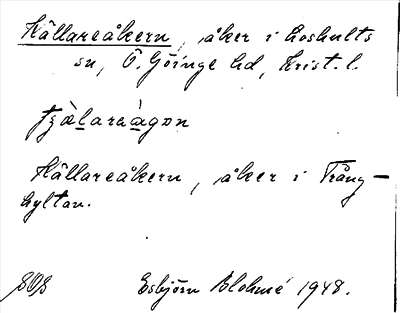 Källareåkern, åker i Loshults
sn, Ö. Göinge hd, Krist. l.
tjälaraågon
Källareåkern, åker i Trång-
hyltan.
Esbjörn Blohmé 1948.